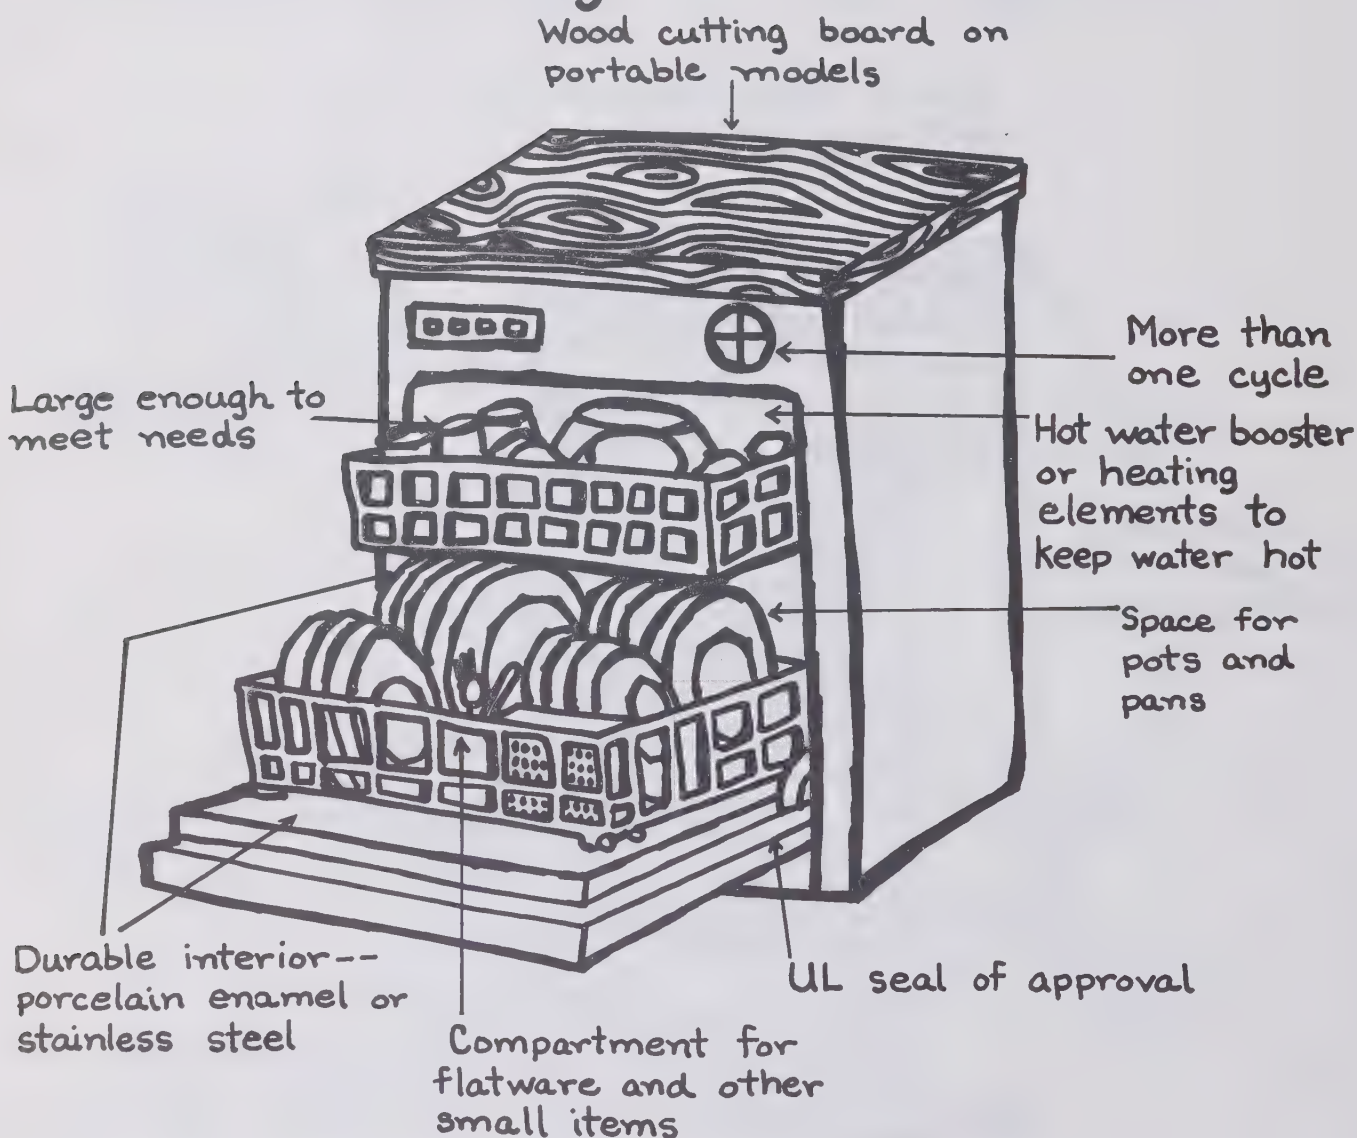 Wood cutting board on
portable models
More than
one cycle
Large enough to
meet needs
Hot water booster
or heating
elements to
keep water hot
Space for
pots and
pans
Durable interior--
porcelain enamel or
stainless steel
UL seal of approval
Compartment for
flatware and other
small items